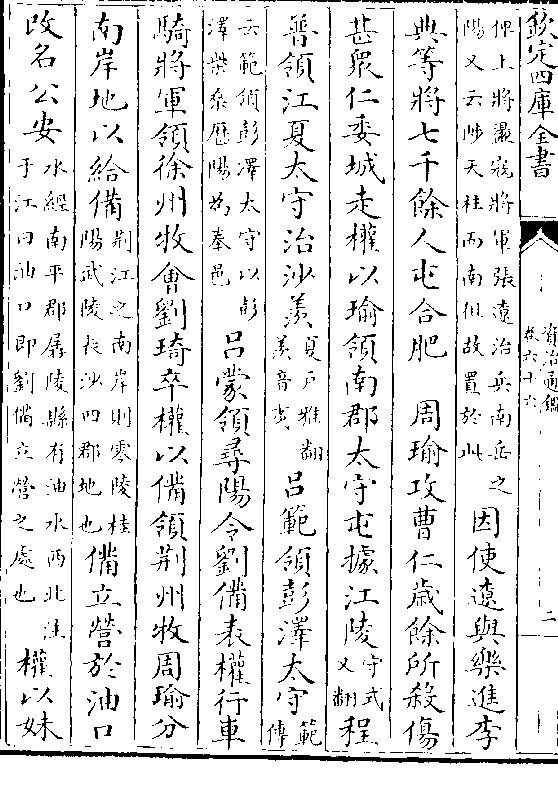 欽定四庫全書
資治通鑑
卷六十六
二
俾上將盪寇將軍張遼治兵南岳之
陽又云陟天柱而南徂故置於此
因使遼與樂進李
典等將七千餘人屯合肥 周瑜攻曹仁歲餘所殺傷
甚衆仁委城走權以瑜領南郡太守屯據江陵守式又翻程
普領江夏太守治沙羨夏戶雅翻羨音夷呂範領彭澤太守範傳
云範領彭澤太守以彭澤柴桑歷陽為奉邑呂蒙領尋陽令劉備表權行車
騎將軍領徐州牧會劉琦卒權以備領荆州牧周瑜分
南岸地以給備荆江之南岸則零陵桂陽武陵長沙四郡地也備立營於油口
改名公安水經南平郡孱陵縣有油水西北注于江曰油口即劉備立營之處也權以妹